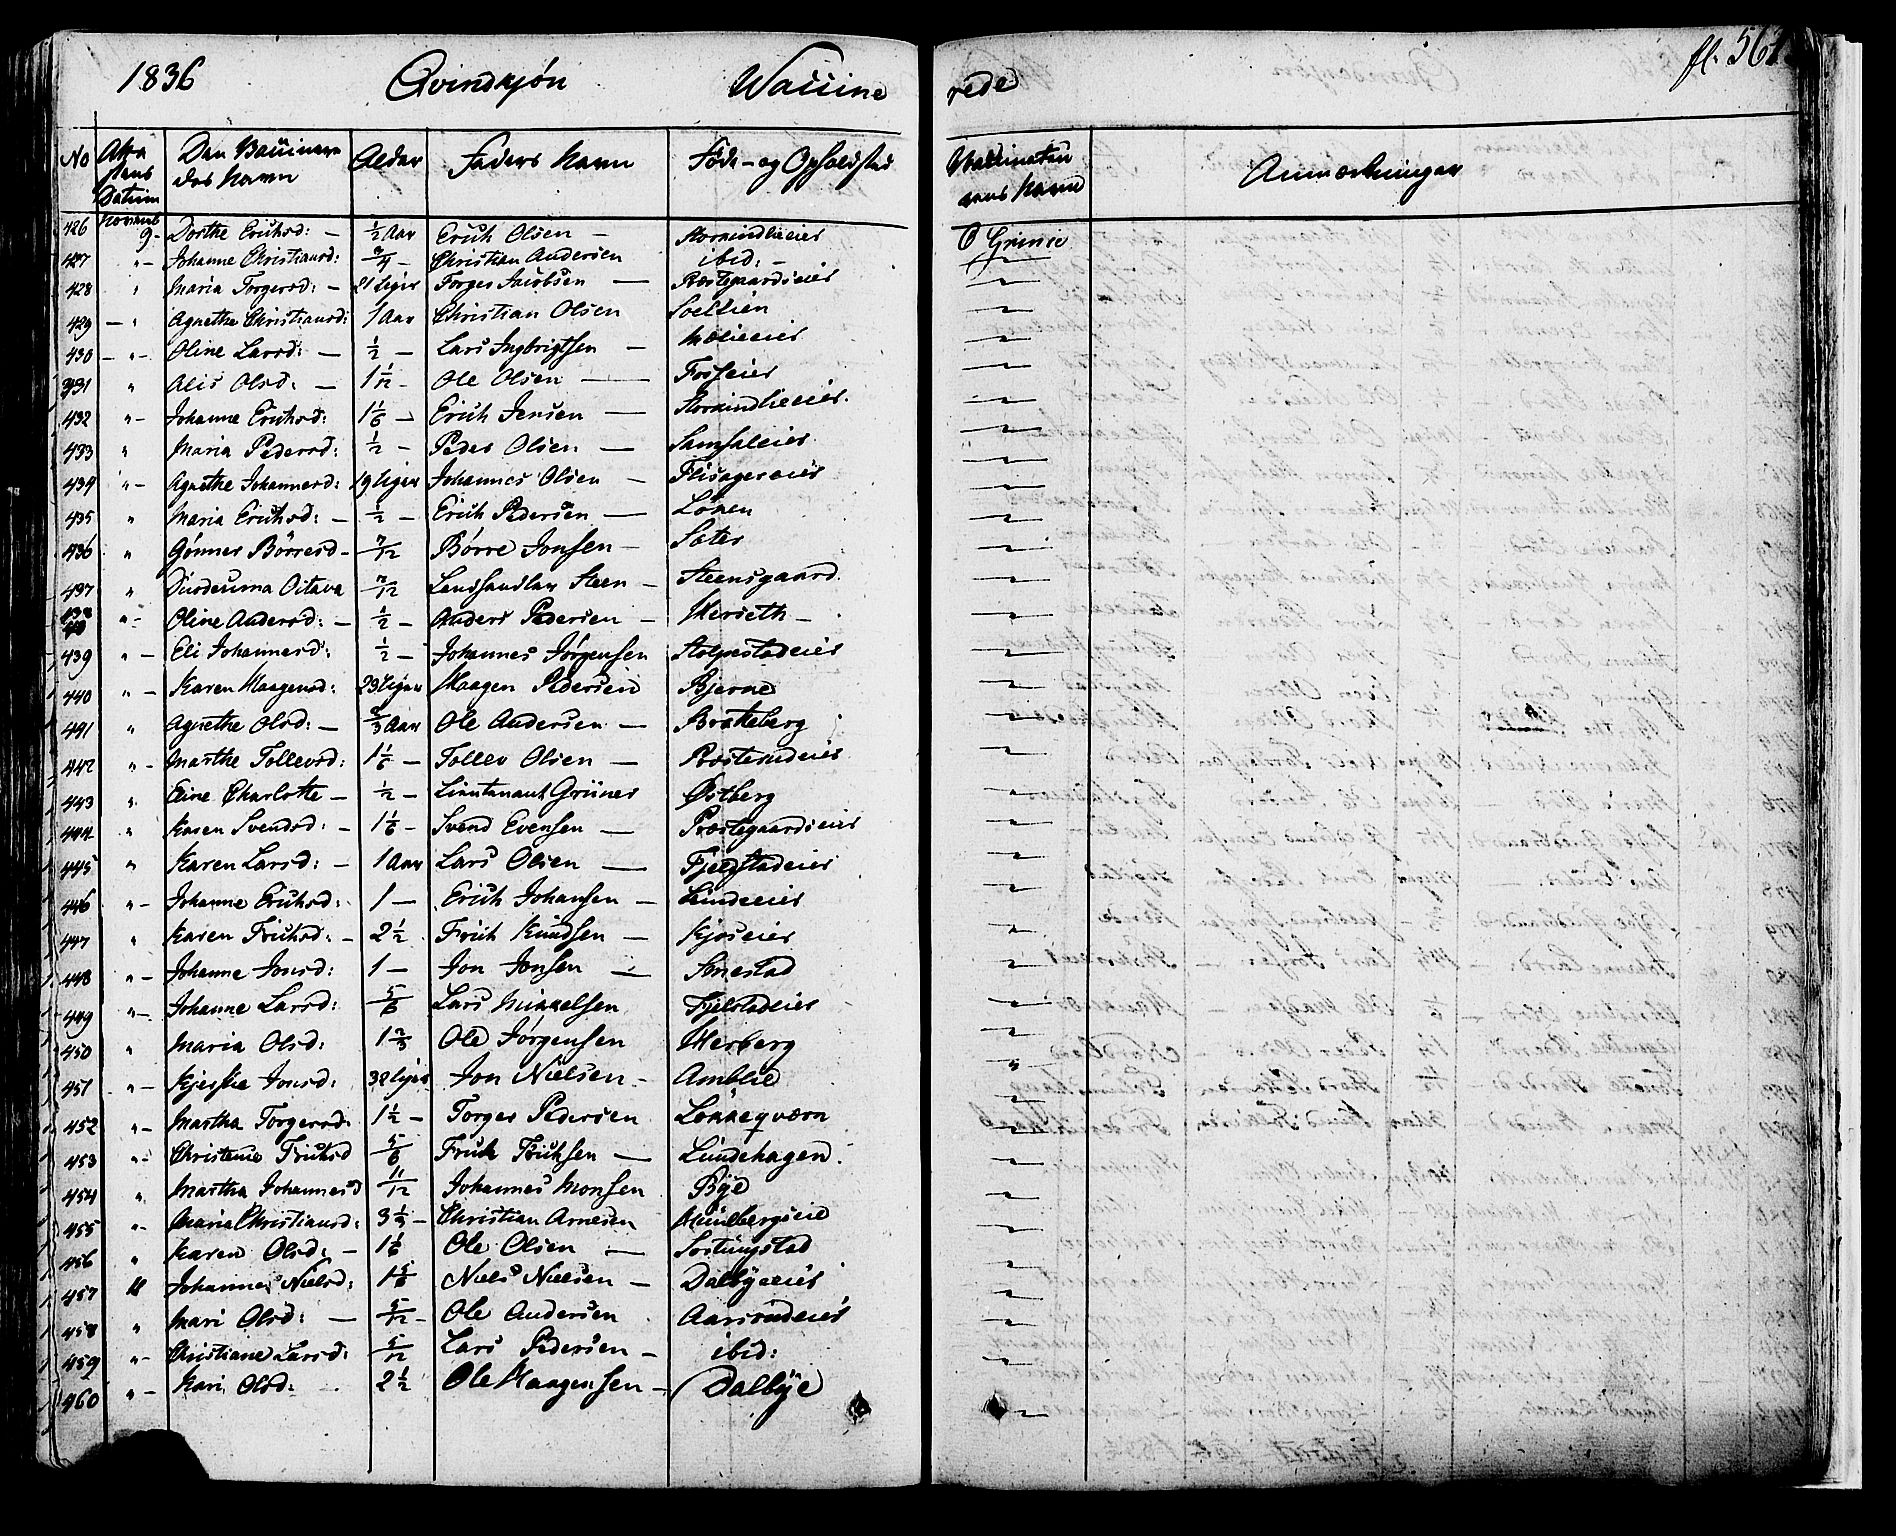 1836 Qvindkjøn Waccine rede fl. 567
No Atte stans Datum Den Vaccinere des Navn Alder Faders Navn Føde- og Opholdsted Vaccinateu rens Navn Anmærkninger
426 Novemb 9- Dorthe Erichsd: - 1/2 Aar Erich Olsen - O Grimse
427 "- Johanne Christiansd: 3/4 - Christian Andersen ibid: -
428 " Maria Torgersd: - 21 liger Torger Jacobsen - Præstegaardseier
429 - " Agnethe Christiansd: 1 Aar Christian Olsen
430 - "- Oline Larsd: - 1/2 - Lars Ingbrigtsen - Mælieeier
431 " Alis Olsd: - 1 1/12 - Ole Olsen - Fosseier
432 "- Johanne Erichsd: 1 1/6 - Erich Jensen -
433 " Maria Pedersd: 1/2 - Peder Olsen -
434 "- Agnethe Johannesd: 19 liger Johannes Olsen - Flisagereier
435 " Maria Erichsd: - 1/2 - Erich Pedersen - Løken
436 " Gønner Børresd - 7/12 Børre Jonsen - Sater
437 " Octava 7/12 Landhandler Steen - Steensgaard.
438 "- Oline Andersd: - 1/2 - Anders Pedersen -
439 "- Eli Johannesd: 1/2 - Johannes Jørgensen Stolpestadeier
440 "- Karen Haagensd: 23 liger Haagen Pedersen Bjerne
441 " Agnethe Olsd: - 2/3 Aar Ole Andersen - Bratteberg
442 "- Marthe Tollevsd: 1 1/6 - Tollev Olsen - Præsterudeier
443 " Eline Charlotte - 1/2 - Lieutenant Grüner Østberg
444 " Karen Svendsd: - 1 1/6 - Svend Evensen - Præstegaardseier
445 " Karen Larsd: - 1 Aar Lars Olsen - Fjelstadeier
446 "- Johanne Erichsd: 1 - Erich Johansen - Lundeeier
447 " Karen Frichsd: - 2 1/2 Frich Knudsen - Kjoseier
448 "- Johanne Jonsd: 1 - Jon Jonsen - Smestad
449 "- Johanne Larsd: 5/6 Lars Mikkelsen Fjelstadeier
450 " Maria Olsd: 1 2/3 Ole Jørgensen Herberg
451 "- Kjerstie Jonsd: 32 liger Jon Nielsen - Amblie
452 "- Martha Torgersd. 1 1/2 - Torger Pedersen Løkkeqværn
453 "- Christense Frichsd 5/6 Frich Frichsen - Lundehagen.
454 " Martha Johannesd 11/12 Johannes Monsen Bye
455 "- Maria Christiansd: 3 1/3 - Christian Arnesen
456 " Karen Olsd: - 1 1/6 Ole Olsen -
457 Johannes Nielsd: 1 5/6 Niels Nielsen - Dalbyeeier
458 " Mari Olsd: - 5/12 - Ole Andersen Aarsrudeier
459 "- Christiane Larsd: 5/12 Lars Pedersen - ibid:
460 "- Kari Olsd: 2 1/2 Ole Haagensen - Dalbye